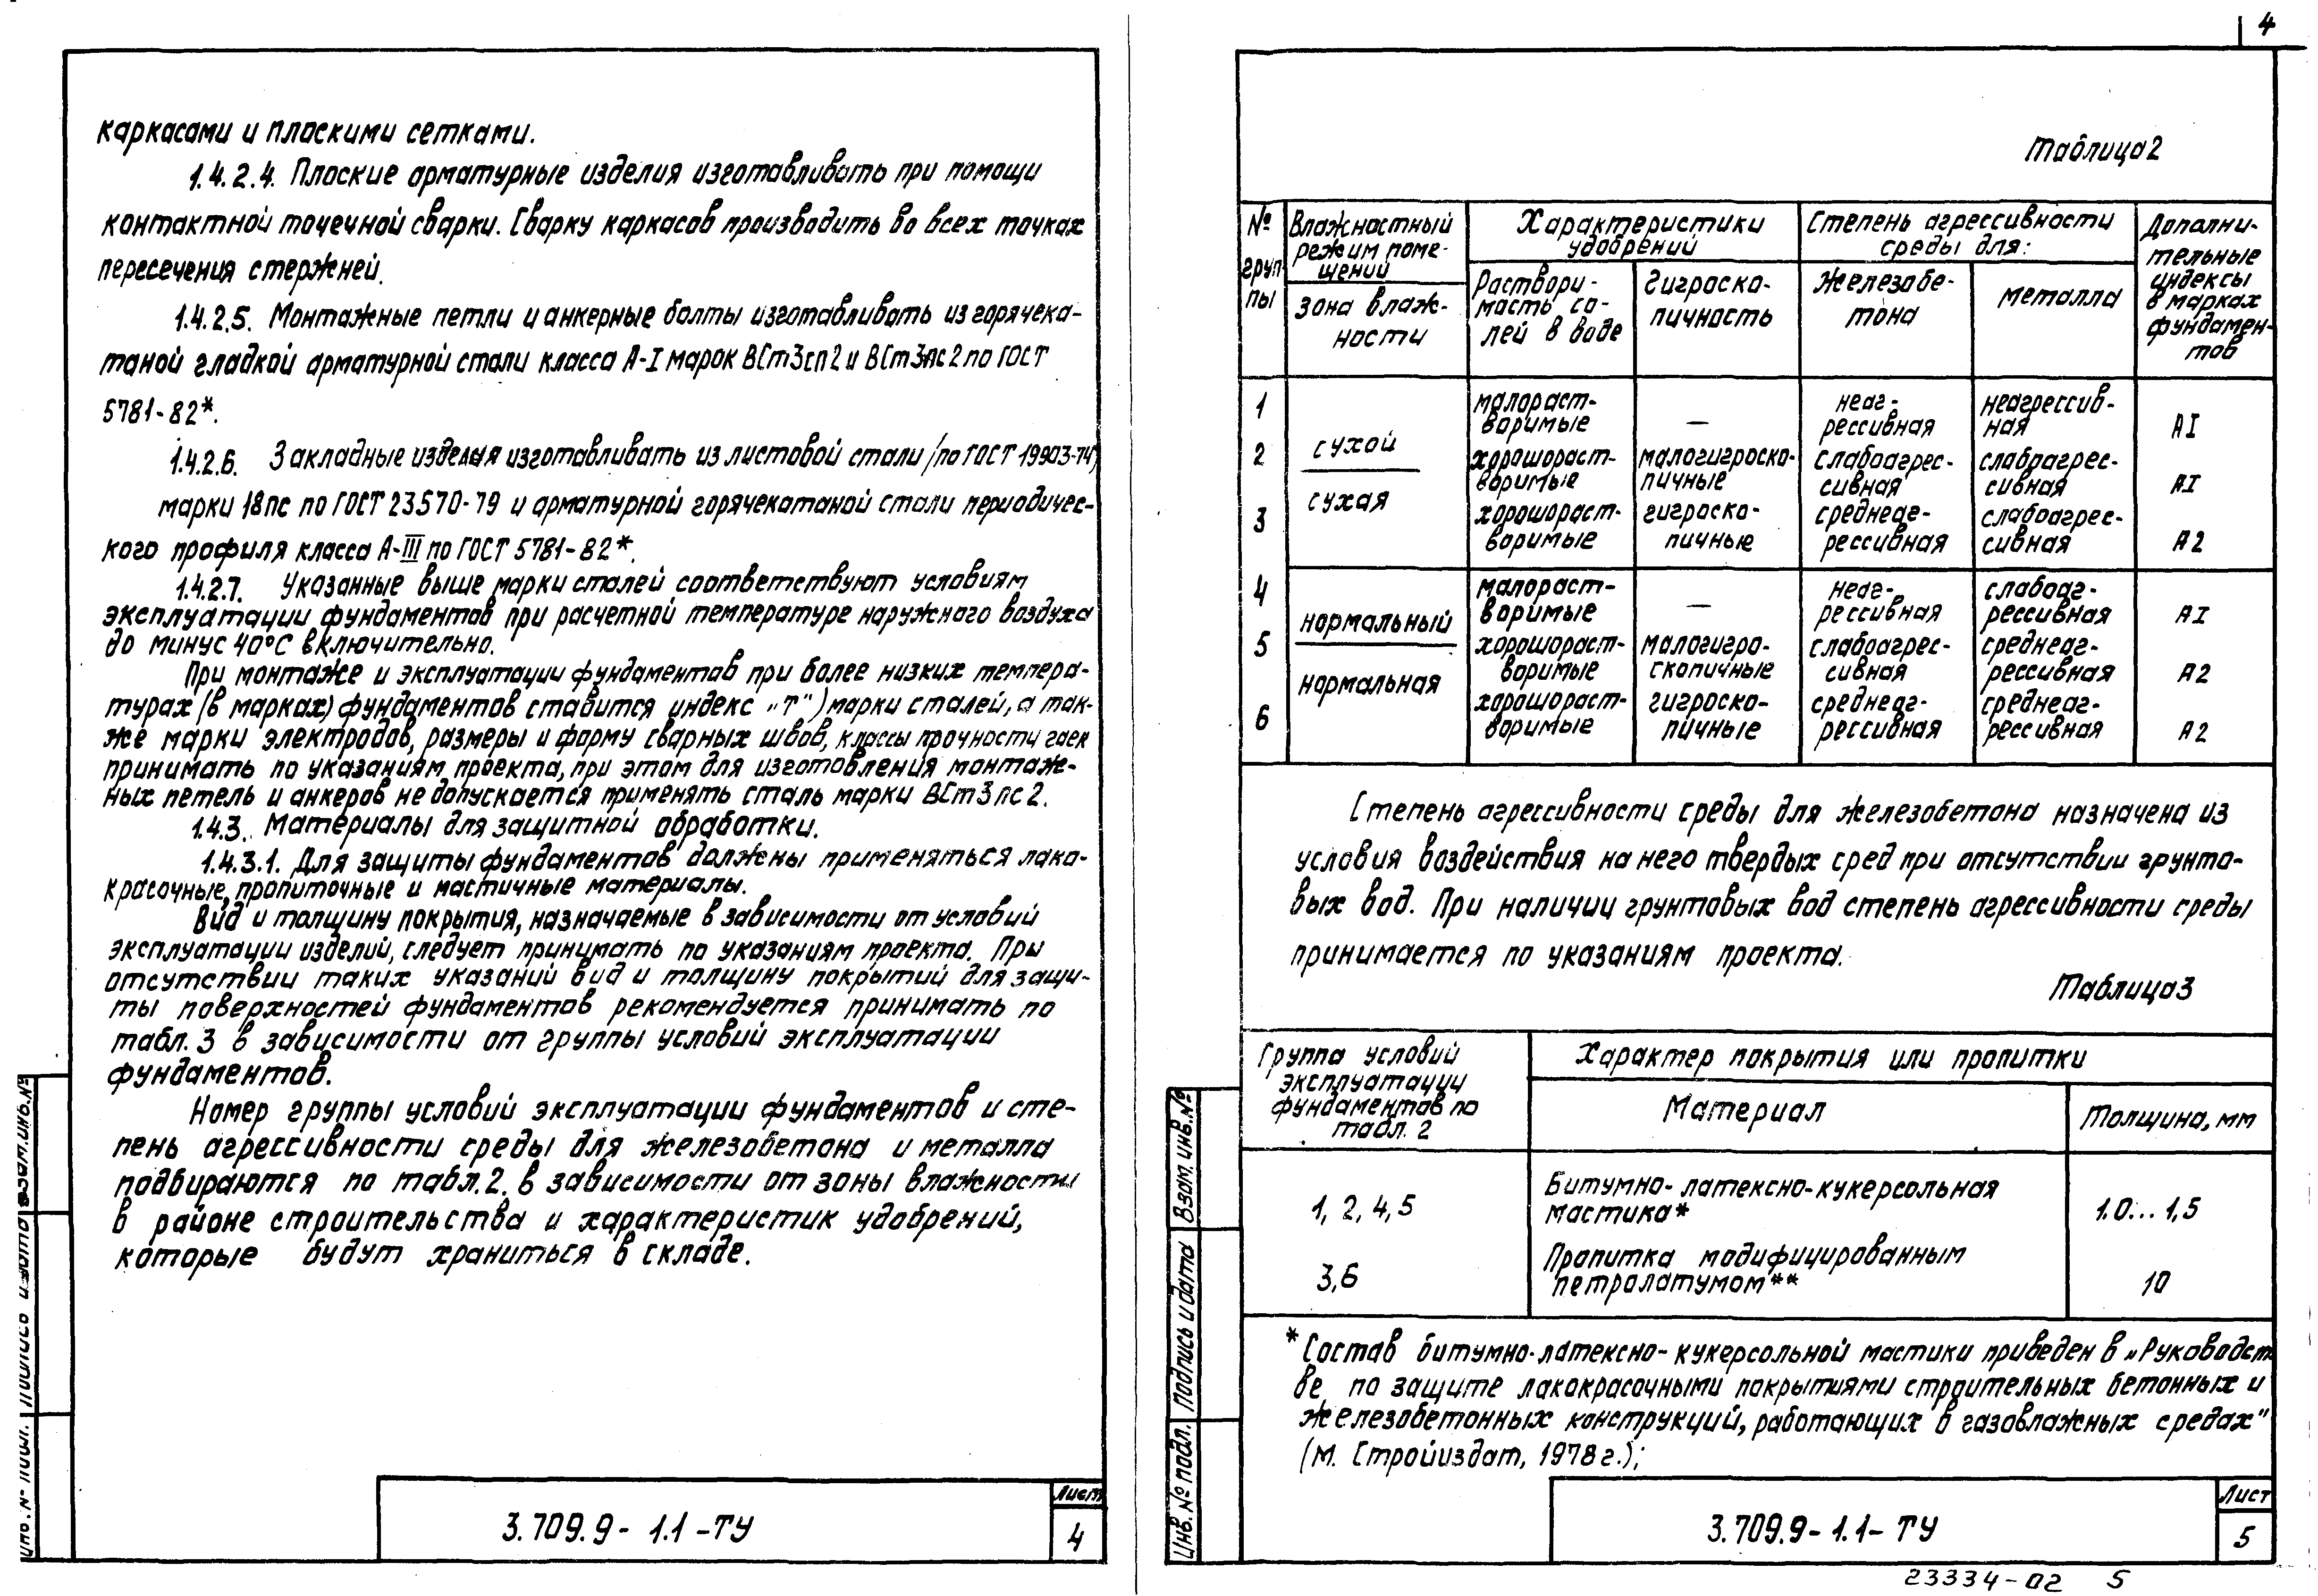 каркасами и плоскими сетками.
1.4.2.4. Плоские арматурные изделия изготавливать при помощи
контактной точечной сварки. Сварку каркасов производить во всех точках
пересечения стержней.
1.4.2.5. Монтажные петли и анкерные болты изготавливать из горячека-
таной гладкой арматурной стали класса А-I марок ВСт3сп2 и ВСт3пс2 по ГОСТ
5781-82*.
1.4.2.6. Закладные изделия изготавливать из листовой стали (по ГОСТ 19903-74)
марки 18пс по ГОСТ 23570-79 и арматурной горячекатаной стали периодичес-
кого профиля класса А-III по ГОСТ 5781-82*.
1.4.2.7. Указанные выше марки сталей соответствуют условиям
эксплуатации фундаментов при расчетной температуре наружного воздуха
до минус 40°С включительно.
При монтаже и эксплуатации фундаментов при более низких темпера-
турах (в марках) фундаментов ставится индекс „Т") марки сталей, а так-
же марки электродов, размеры и форму сварных швов, классы прочности гаек
принимать по указаниям проекта, при этом для изготовления монтаж-
ных петель и анкеров не допускается применять сталь марки ВСт3пс2.
1.4.3. Материалы для защитной обработки.
1.4.3.1. Для защиты фундаментов должны применяться лако-
красочные, пропиточные и мастичные материалы.
Вид и толщину покрытия, назначаемые в зависимости от условий
эксплуатации изделий, следует принимать по указаниям проекта. При
отсутствии таких указаний вид и толщину покрытий для защи-
ты поверхностей фундаментов рекомендуется принимать по
табл. 3 в зависимости от группы условий эксплуатации
фундаментов.
Номер группы условий эксплуатации фундаментов и сте-
пень агрессивности среды для железобетона и металла
подбираются по табл. 2. в зависимости от зоны влажности
в районе строительства и характеристик удобрений,
которые будут храниться в складе.
3.709.9-1.1-ТУ
Лист
4
Инв. № подл. Подпись и дата Взам. инв. №
4
Таблица 2
№ груп-пы | Влажностный режим поме-щений / зона влаж-ности | Характеристики удобрений | Степень агрессивности среды для: | Дополни-тельные индексы в марках фундамен-тов
Раствори-мость со-лей в воде | Гигроско-пичность | Железобе-тона | металла
1 | сухой / сухая | малораст-воримые | — | неаг-рессивная | неагрессив-ная | АI
2 | хорошораст-воримые | малогигроско-пичные | слабоагрес-сивная | слабоагрес-сивная | АI
3 | хорошораст-воримые | гигроско-пичные | среднеаг-рессивная | слабоагрес-сивная | А2
4 | нормальный / нормальная | малораст-воримые | — | неаг-рессивная | слабоаг-рессивная | АI
5 | хорошораст-воримые | малогигро-скопичные | слабоагрес-сивная | среднеаг-рессивная | А2
6 | хорошораст-воримые | гигроско-пичные | среднеаг-рессивная | среднеаг-рессивная | А2
Степень агрессивности среды для железобетона назначена из
условия воздействия на него твердых сред при отсутствии грунто-
вых вод. При наличии грунтовых вод степень агрессивности среды
принимается по указаниям проекта.
Таблица 3
Группа условий эксплуатации фундаментов по табл. 2 | Характер покрытия или пропитки
Материал | Толщина, мм
1, 2, 4, 5 | Битумно-латексно-кукерсольная мастика* | 1.0...1,5
3,6 | Пропитка модифицированным петролатумом** | 10
* Состав битумно-латексно-кукерсольной мастики приведен в „Руководст
ве по защите лакокрасочными покрытиями строительных бетонных и
железобетонных конструкций, работающих в газовлажных средах"
(М. Стройиздат, 1978 г.);
3.709.9-1.1-ТУ
Лист
5
Инв. № подл. Подпись и дата Взам. инв. №
23334-02 5